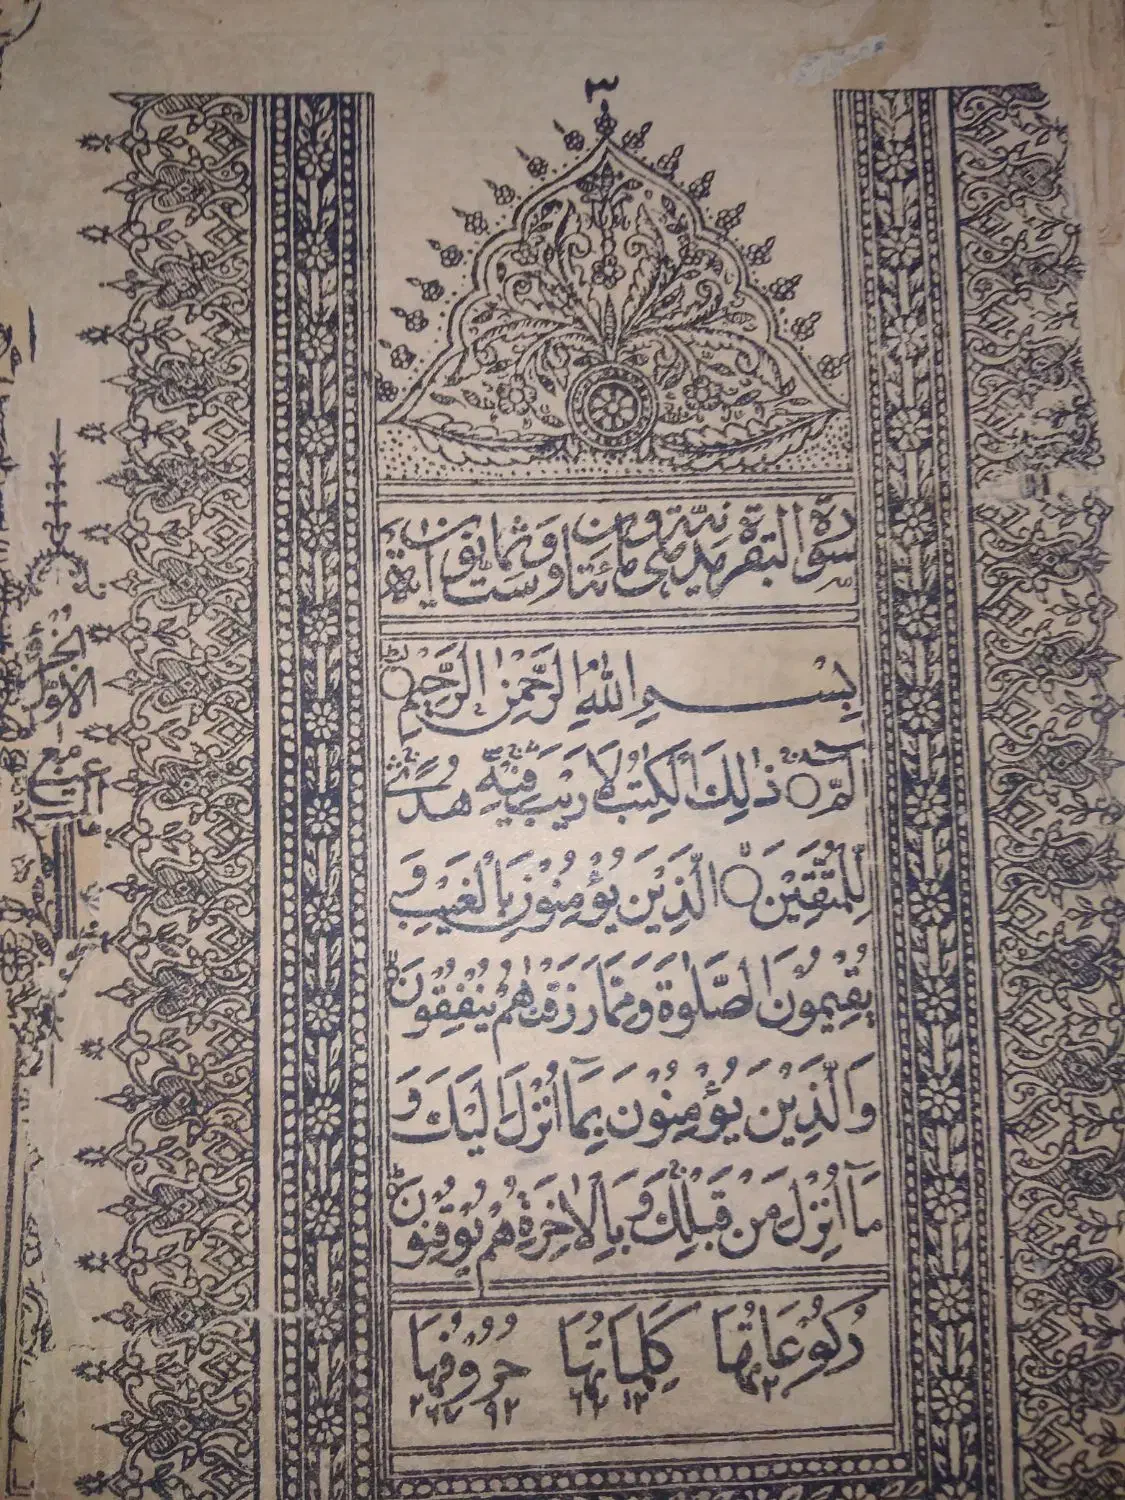 ٣
سورة البقرة مدنية وهي مائتان وست وثمانون اية
بِسْمِ اللّٰهِ الرَّحْمٰنِ الرَّحِيْمِ
الٓمّٓ ذٰلِكَ الْكِتٰبُ لَا رَيْبَ فِيْهِ هُدًى
لِّلْمُتَّقِيْنَ الَّذِيْنَ يُؤْمِنُوْنَ بِالْغَيْبِ وَ
يُقِيْمُوْنَ الصَّلٰوةَ وَمِمَّا رَزَقْنٰهُمْ يُنْفِقُوْنَ
وَالَّذِيْنَ يُؤْمِنُوْنَ بِمَآ اُنْزِلَ اِلَيْكَ وَ
مَآ اُنْزِلَ مِنْ قَبْلِكَ وَبِالْاٰخِرَةِ هُمْ يُوْقِنُوْنَ
رُكُوْعَاتُهَا كَلِمَاتُهَا حُرُوْفُهَا